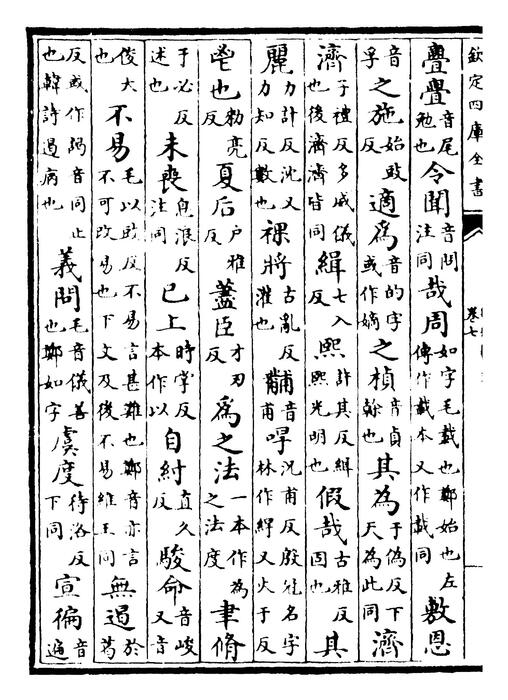 欽定四庫全書
卷七
亹亹音尾勉也令聞音問注同哉周如字毛載也鄭始也左傳作載本又作載同敷恩
音孚之施始豉反適爲音的字或作嫡之楨音貞幹也其爲于偽反下天為此同濟
濟子禮反多威儀也後濟濟皆同緝七入反熙許其反緝熙光明也假哉古雅反固也其
麗力計反沈又力知反數也祼將古亂反灌也黼音甫冔況甫反殷冠名字林作紆又火于反
鬯也勑亮反夏后戶雅反藎臣才刃反爲之法一本作為之法度聿脩
于必反述也未喪息浪反注同已上時掌反本作以自紂直久反駿命音峻又音
俊大也不易毛以豉反不易言甚難也鄭音亦言不可改易也下文及後不易維王同無遏於葛
反或作音同止也韓詩遏病也義問毛音儀善也鄭如字虞度待洛反下同宣徧音遍